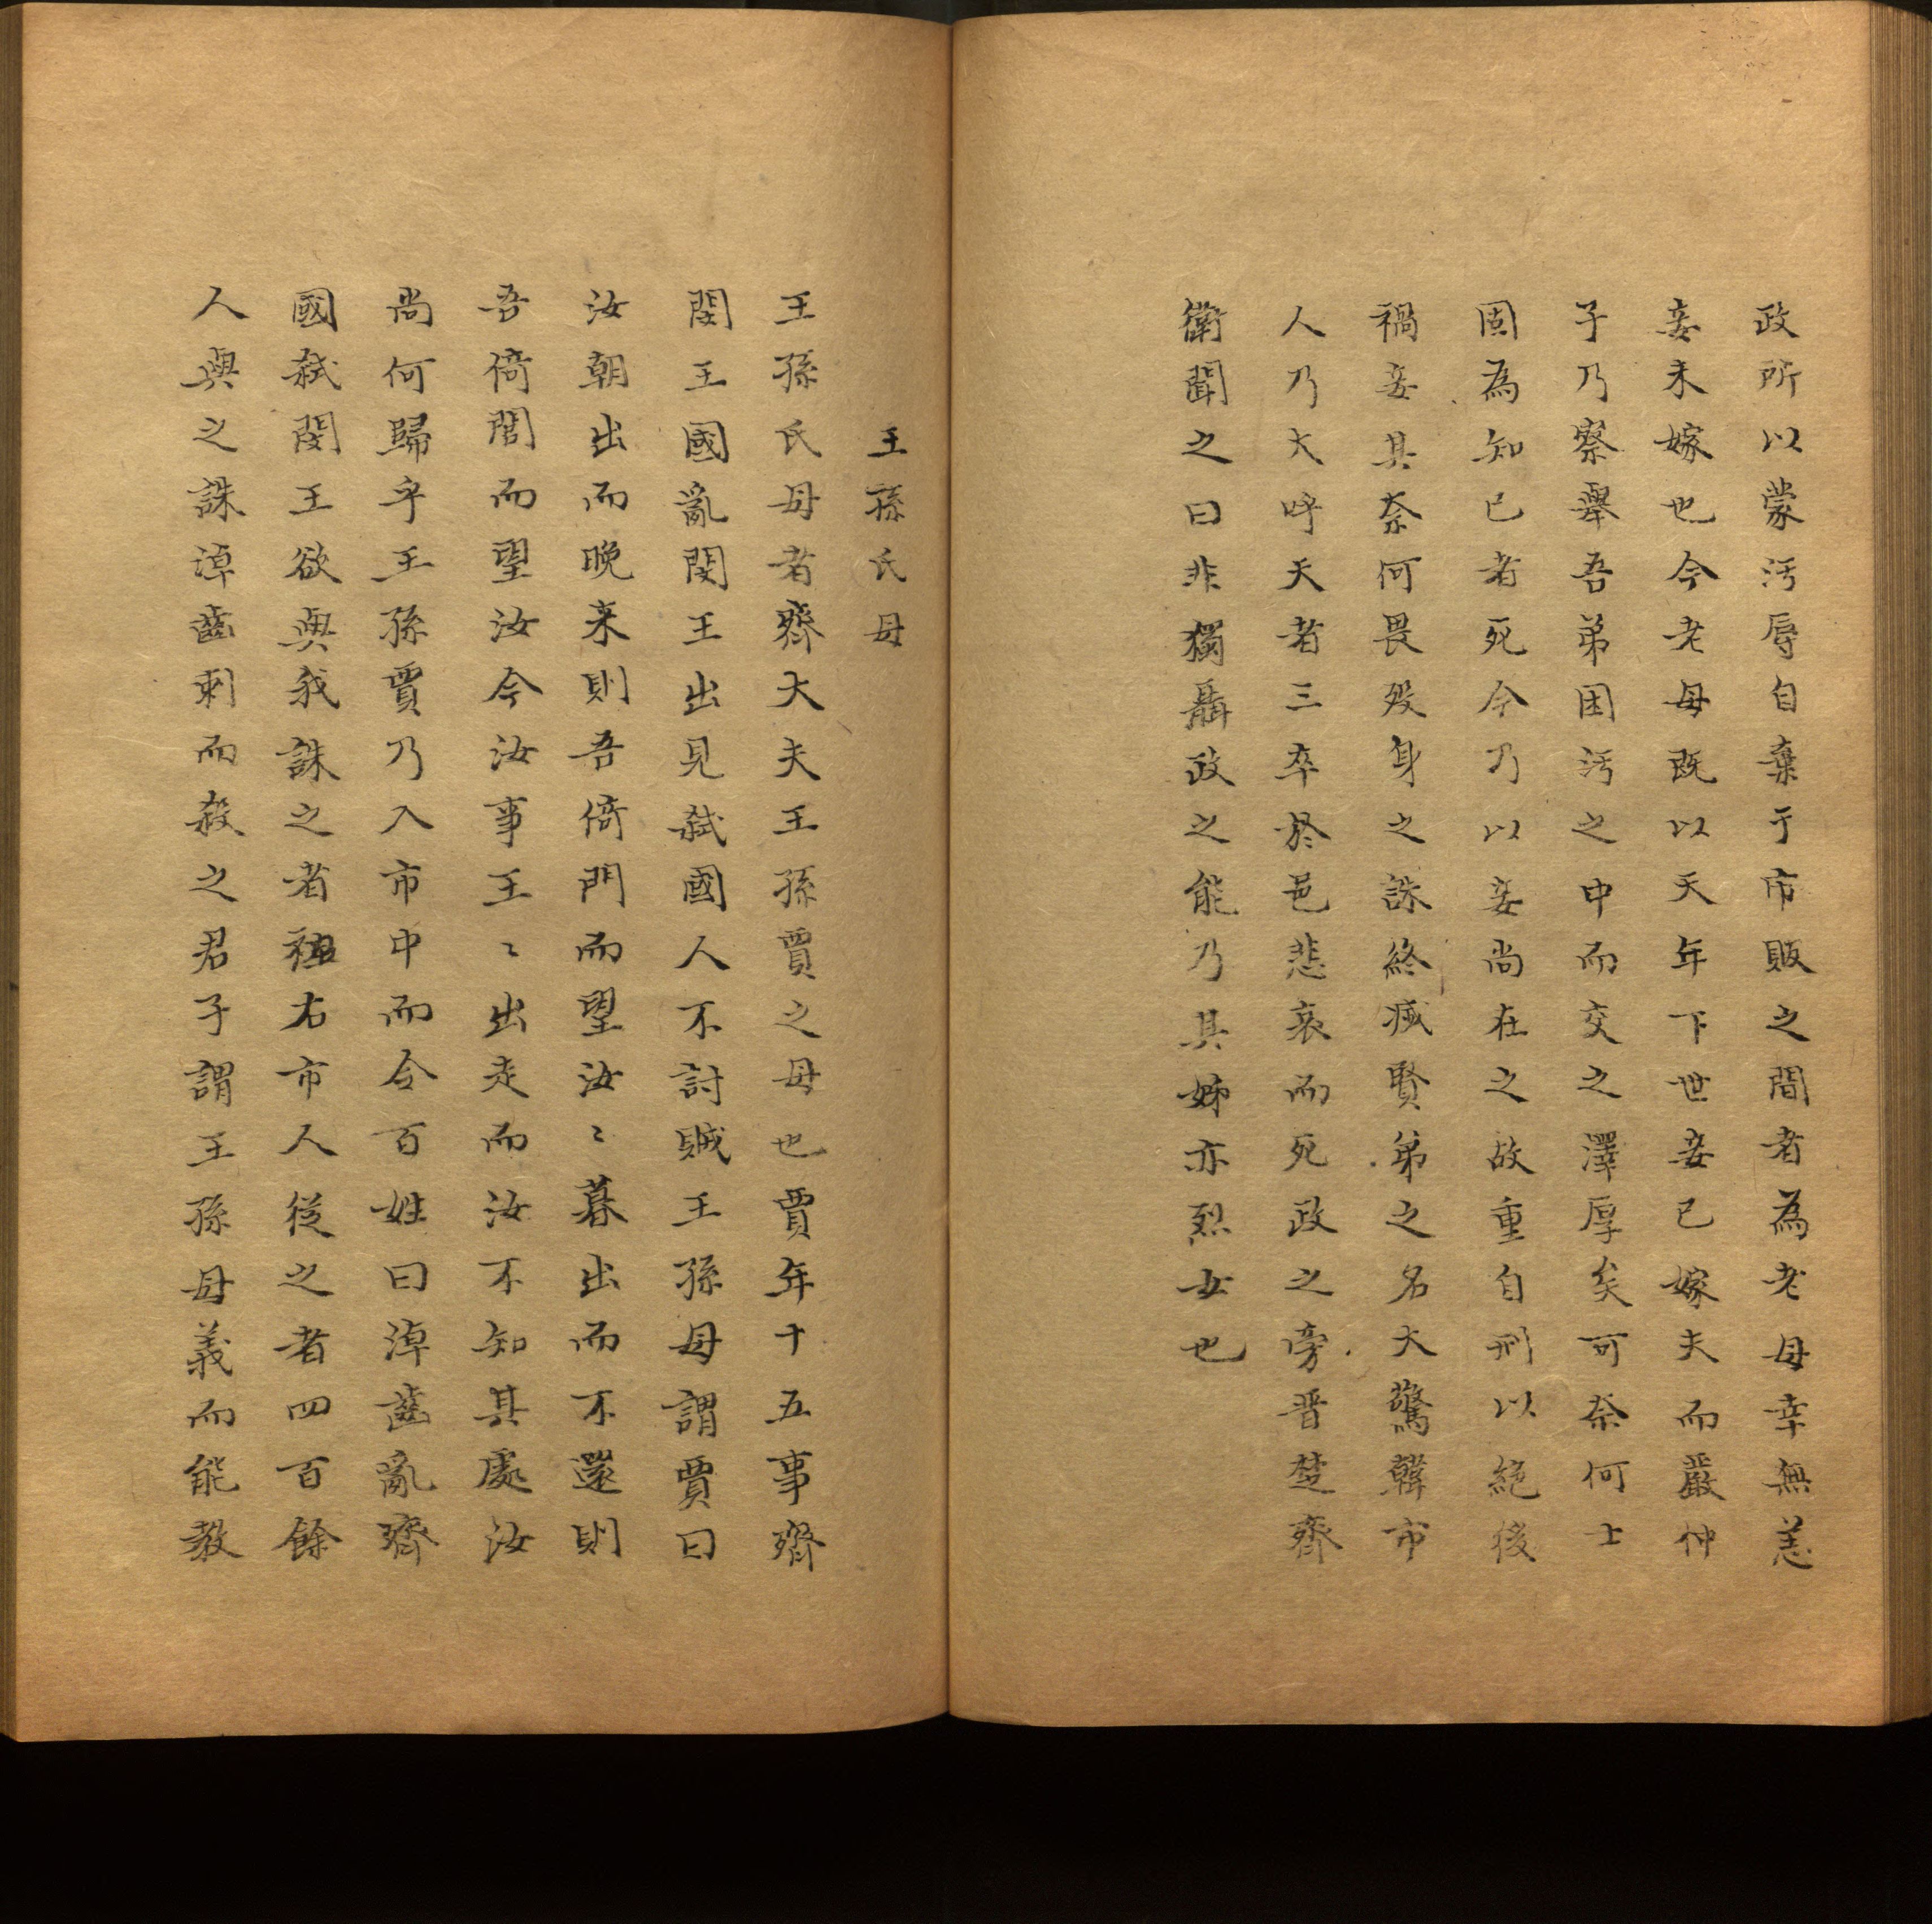 政所以蒙汚辱自棄于市販之間者為老母幸無恙
妾未嫁也今老母既以天年下世妾已嫁夫而嚴仲
子乃察舉吾弟困汚之中而交之澤厚矣可奈何士
固為知己者死今乃以妾尚在之故重自刑以絶後
禍妾其奈何畏歿身之誅終滅賢弟之名大驚韓市
人乃大呼天者三卒於邑悲哀而死政之旁晋楚齊
衛聞之曰非獨聶政之能乃其姊亦烈女也
王孫氏母
王孫氏母者齊大夫王孫賈之母也賈年十五事齊
閔王國亂閔王出見弑國人不討賊王孫母謂賈曰
汝朝出而晚来則吾倚門而望汝〻暮出而不還則
吾倚閭而望汝今汝事王〻出走而汝不知其處汝
尚何歸乎王孫賈乃入市中而令百姓曰淖齒亂齊
國弑閔王欲與我誅之者袒右市人從之者四百餘
人與之誅淖齒刺而殺之君子謂王孫母義而能教